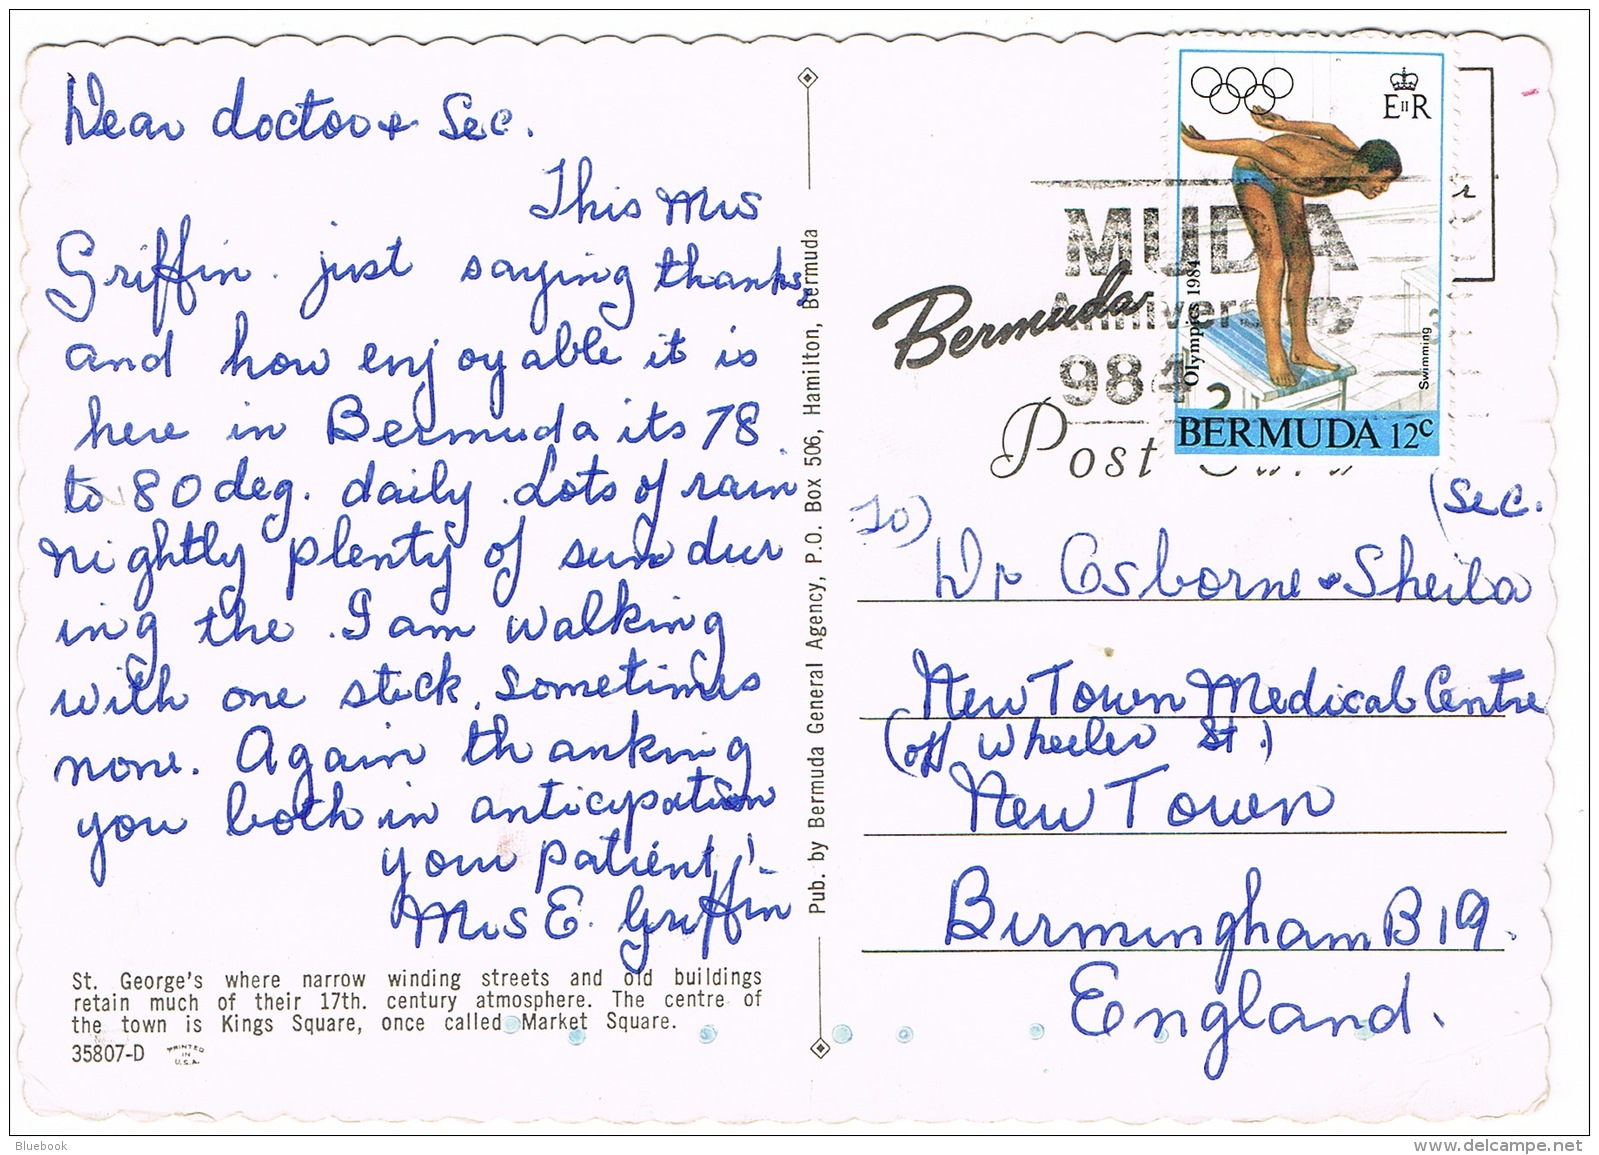 Dear doctor + Sec.
This Mrs
Griffin. just saying thanks,
and how enjoyable it is
here in Bermuda its 78
to 80 deg. daily. Lots of rain
nightly plenty of sun dur
ing the. I am walking
with one stick, sometimes
none. Again thanking
you both in anticypation
your patient!
Mrs E. Griffin
St. George's where narrow winding streets and old buildings
retain much of their 17th. century atmosphere. The centre of
the town is Kings Square, once called Market Square.
35807-D
PRINTED
IN
U.S.A.
Pub. by Bermuda General Agency, P.O. Box 506, Hamilton, Bermuda
MUDA
Anniversary
984
Bermuda
Post
E II R
Olympics 1984
Swimming
BERMUDA 12c
To)
(Sec.
Dr Osborne + Sheila
New Town Medical Centre
(off Wheeler St.)
New Town
Birmingham B19.
England.
Bluebook
www.delcampe.net